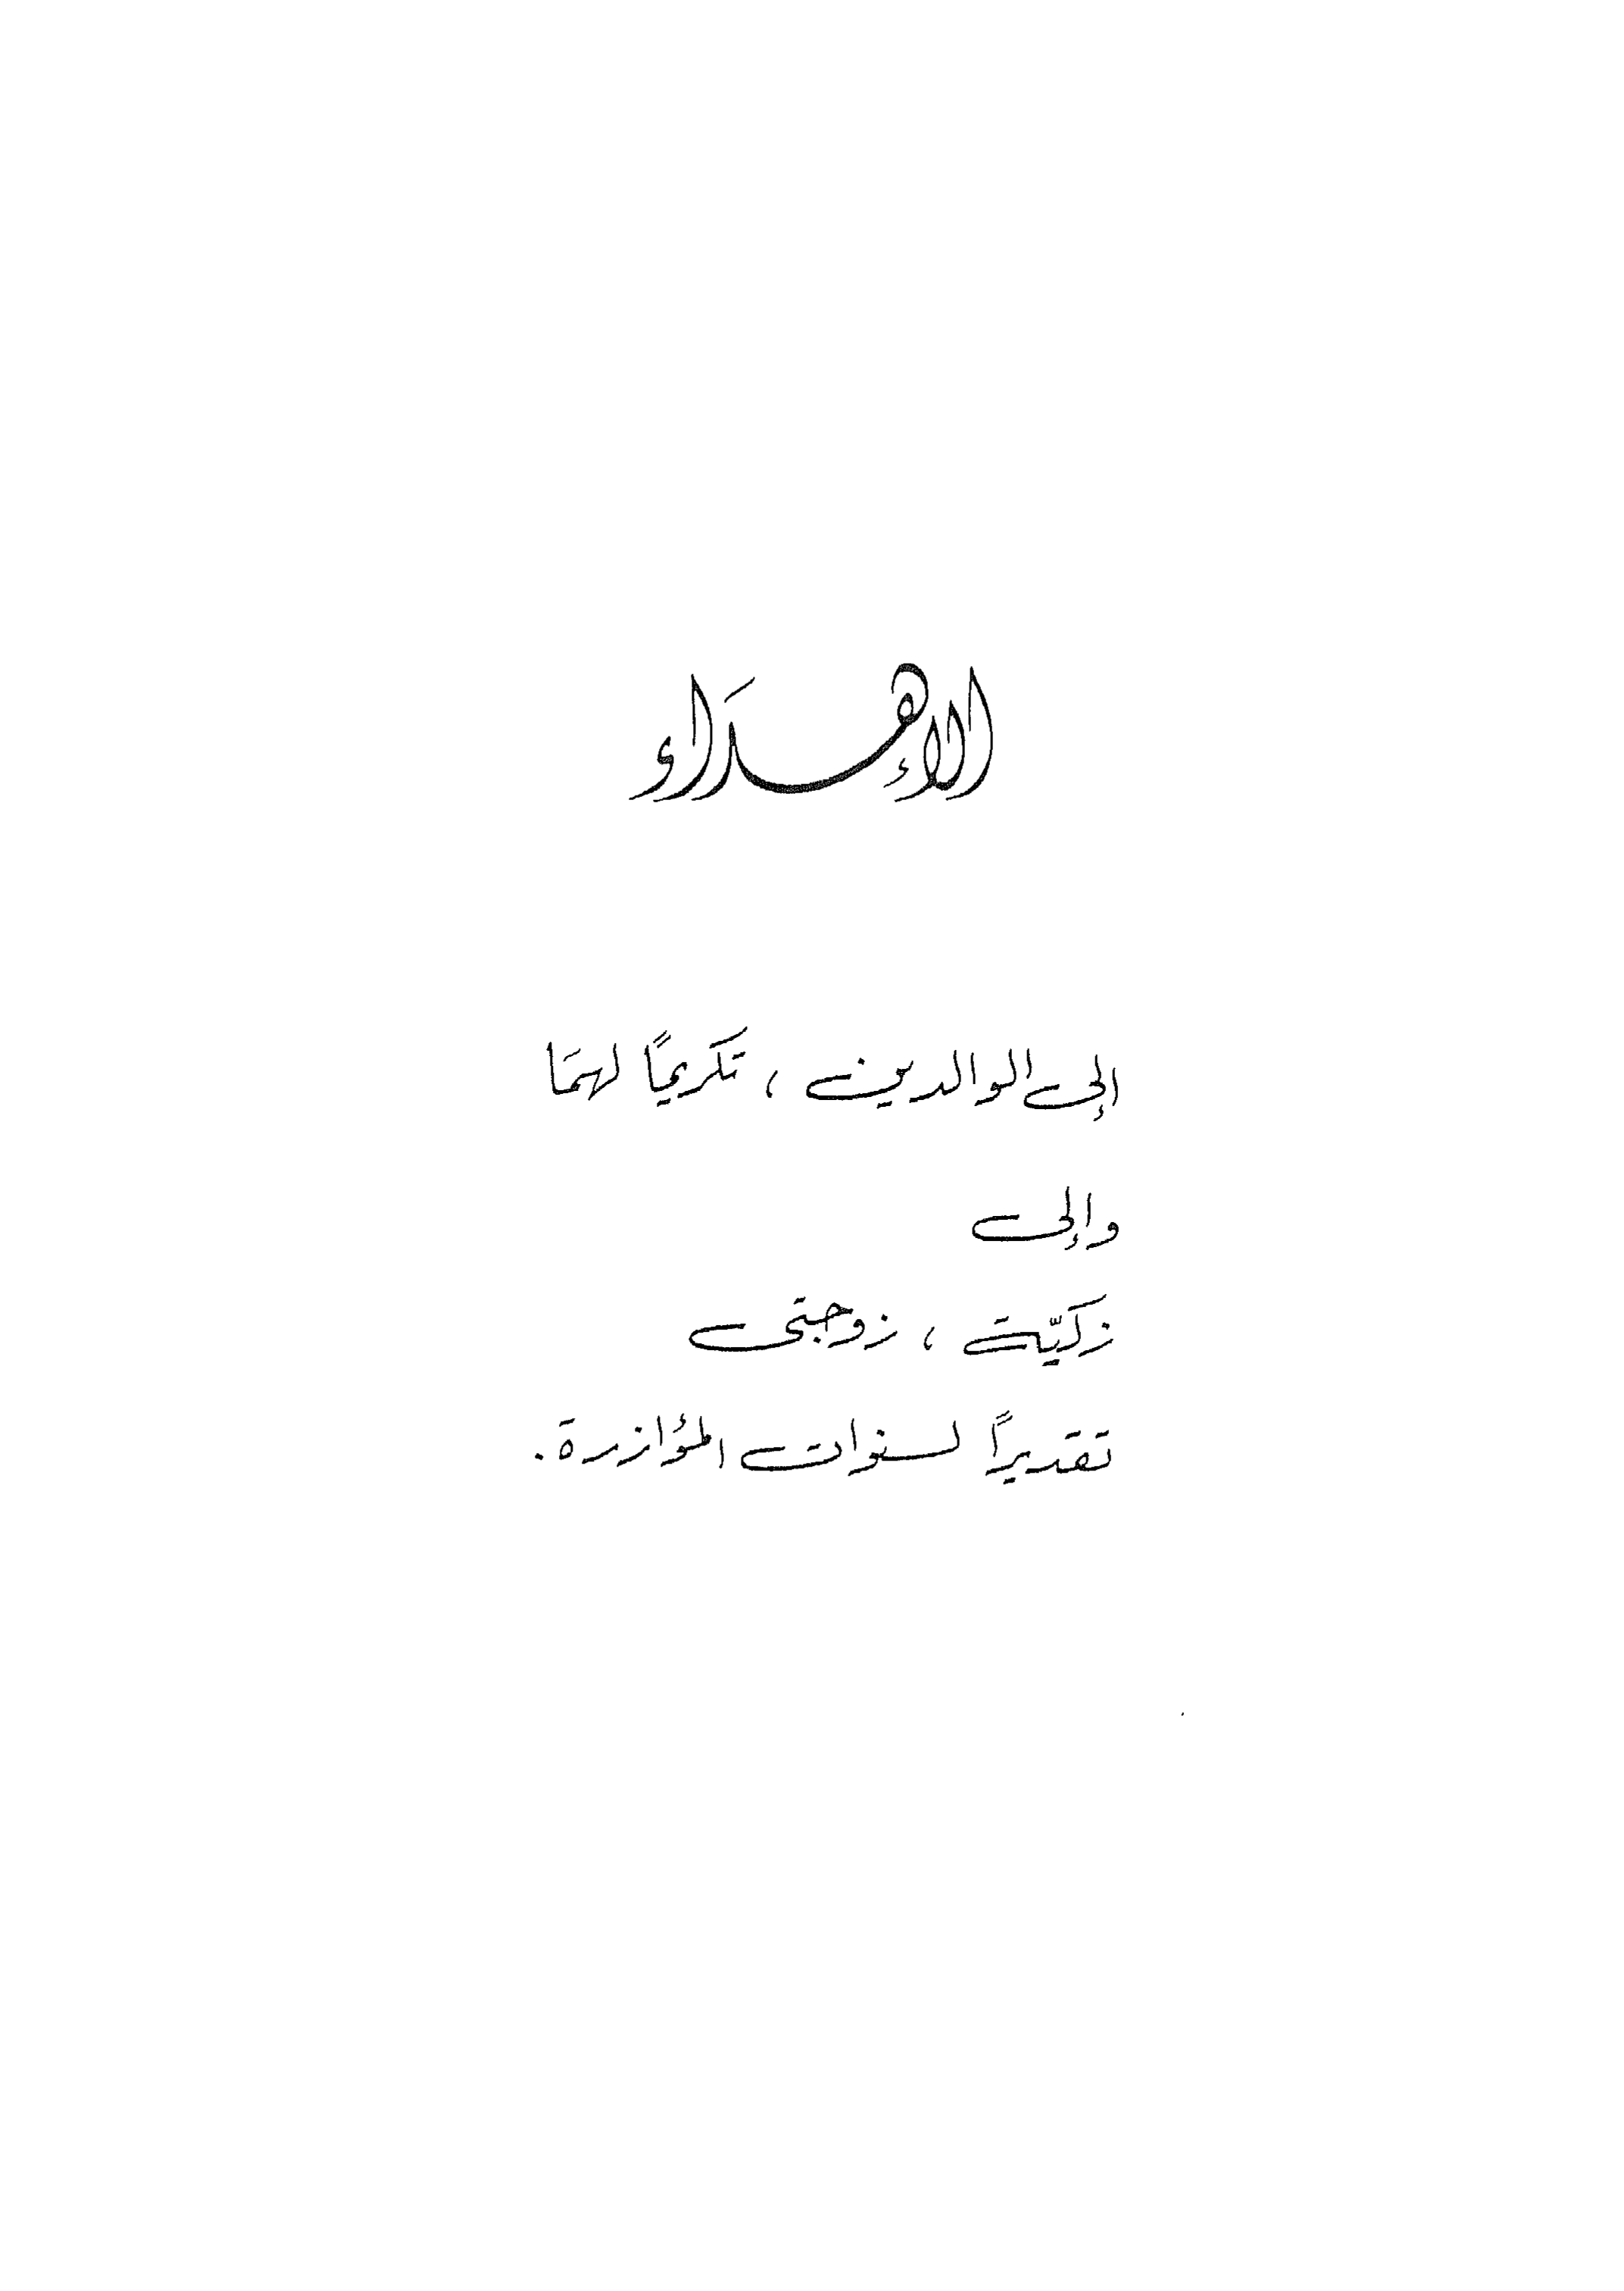 الإهداء
إلى الوالدين ، تكريمًا لهمَا
وإلى
زكيّة ، زوجتى
تقديرًا لسنوات المؤازرة .